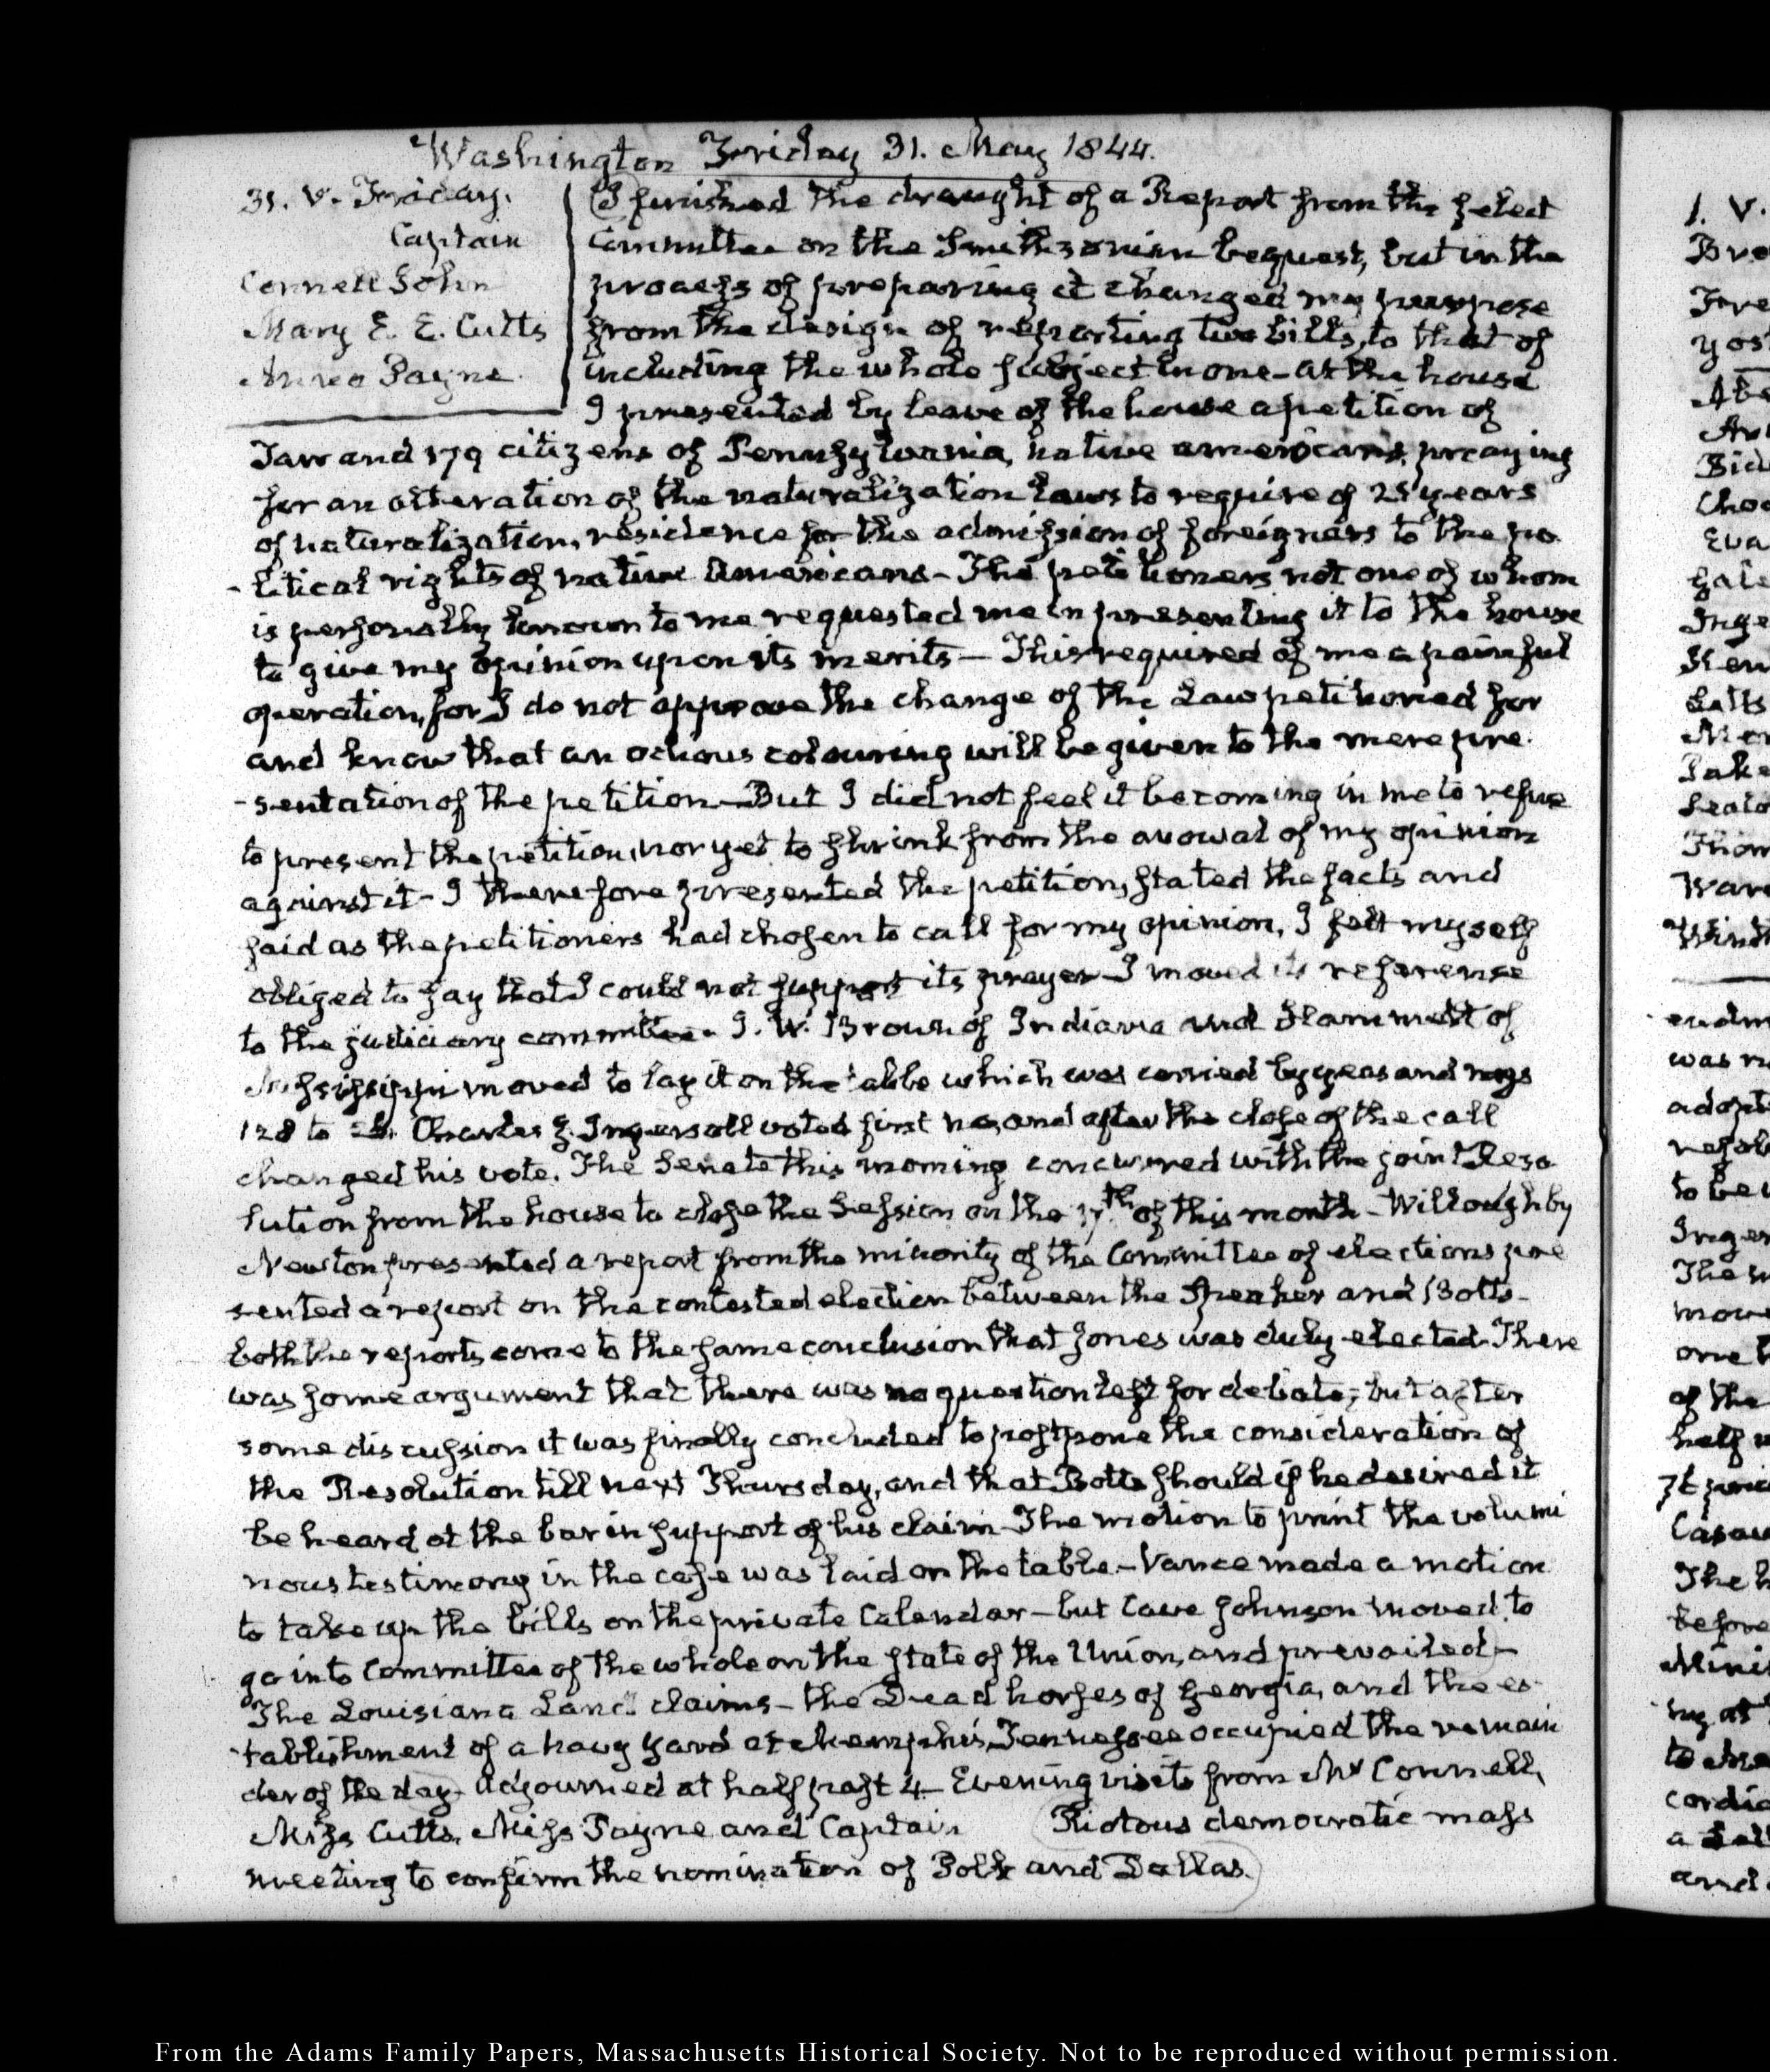 Washington Friday 31. May 1844.
31. V. Friday.
Captain
Connell John
Mary E. E. Cutts
Annea Payne
I finished the draught of a Report from the select
Committee on the Smithsonian bequest, but in the
process of preparing it changed my purpose
from the design of reporting two bills, to that of
including the whole subject in one - At the house
I presented by leave of the house a petition of
and 179 citizens of Pennsylvania, native americans, praying
for an alteration of the naturalization Laws to require of 25 years
of naturalization, residence for the admission of foreigners to the po
-litical rights of native Americans - The petitioners not one of whom
is personally known to me requested me in presenting it to the house
to give my opinion upon its merits - This required of me a painful
operation, for I do not approve the change of the Law petitioned for
and know that an odious colouring will be given to the mere pre-
-sentation of the petition - But I did not feel it becoming in me to refuse
to present the petition, nor yet to shrink from the avowal of my opinion
against it - I therefore presented the petition, stated the facts and
said as the petitioners had chosen to call for my opinion, I felt myself
obliged to say that I could not support its prayer - I moved its reference
to the judiciary committee. J. W. Brown of Indiana and Hammett of
Mississippi moved to lay it on the table which was carried by yeas and nays
128 to Charles J. Ingersoll voted first no, and after the close of the call
changed his vote. The Senate this morning concurred with the joint Reso
lution from the house to close the Session on the 17th of this month - Willoughby
Newton presented a report from the minority of the Committee of elections pre
sented a report on the contested election between the Speaker and Botts -
both the reports come to the same conclusion that Jones was duly elected - There
was some argument that there was no question left for debate; but after
some discussion it was finally concluded to postpone the consideration of
the Resolution till next Thursday, and that Botts should if he desired it
be heard at the bar in support of his claim - The motion to print the volumi
nous testimony in the case was laid on the table - Vance made a motion
to take up the bills on the private Calendar - but Cave Johnson moved to
go into Committee of the whole on the state of the Union, and prevailed -
The Louisiana Land claims - the Dead horses of Georgia, and the es-
-tablishment of a navy yard at Memphis, Tennessee occupied the remain
der of the day - Adjourned at half past 4 - Evening visits from Mr Connell,
Miss Cutts, Miss Payne and Captain Riotous democratic mass
meeting to confirm the nomination of Polk and Dallas.
1. V.
was n
The
to be
The
of the
half
before
and
From the Adams Family Papers, Massachusetts Historical Society. Not to be reproduced without permission.